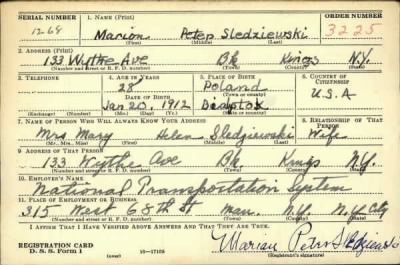 SERIAL NUMBER 1. NAME (Print) ORDER NUMBER
1268 Marion Peter Sledziewski 3225
(First) (Middle) (Last)
2. ADDRESS (Print)
133 Wythe Ave Bk Kings N.Y.
(Number and street or R. F. D. number) (Town) (County) (State)
3. TELEPHONE 4. AGE IN YEARS 5. PLACE OF BIRTH 6. COUNTRY OF CITIZENSHIP
28 Poland
DATE OF BIRTH (Town or county) U.S.A
Jan 20, 1912
(Exchange) (No.) (Mo.) (Day) (Yr.) (State or country)
7. NAME OF PERSON WHO WILL ALWAYS KNOW YOUR ADDRESS 8. RELATIONSHIP OF THAT PERSON
Mrs. Mary Helen Sledziewski Wife
(Mr., Mrs., Miss) (First) (Middle) (Last)
9. ADDRESS OF THAT PERSON
133 Wythe Ave Bk Kings N.Y.
(Number and street or R. F. D. number) (Town) (County) (State)
10. EMPLOYER'S NAME
National Transportation System
11. PLACE OF EMPLOYMENT OR BUSINESS
315 West 68th St Man. N.Y. N.Y. City
(Number and street or R. F. D. number) (Town) (County) (State)
I AFFIRM THAT I HAVE VERIFIED ABOVE ANSWERS AND THAT THEY ARE TRUE.
REGISTRATION CARD
D. S. S. Form 1 16-17105 Marian Peter Sledziewski
(Registrant's signature)